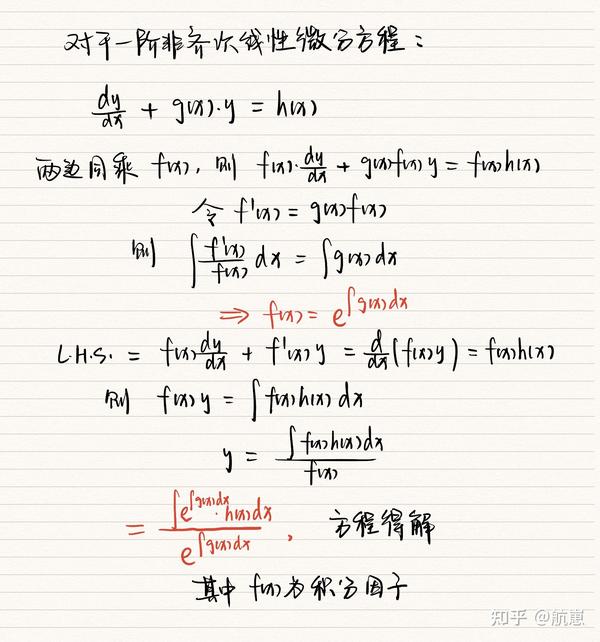 对于一阶非齐次线性微分方程：
dy/dx + g(x)·y = h(x)
两边同乘 f(x), 则 f(x)·dy/dx + g(x)f(x)y = f(x)h(x)
令 f'(x) = g(x)f(x)
则 ∫ f'(x)/f(x) dx = ∫ g(x)dx
⇒ f(x) = e^(∫g(x)dx)
L.H.S. = f(x)dy/dx + f'(x)y = d/dx(f(x)y) = f(x)h(x)
则 f(x)y = ∫ f(x)h(x)dx
y = ∫f(x)h(x)dx / f(x)
= ∫e^(∫g(x)dx)·h(x)dx / e^(∫g(x)dx) , 方程得解
其中 f(x)为积分因子
知乎 @航崽